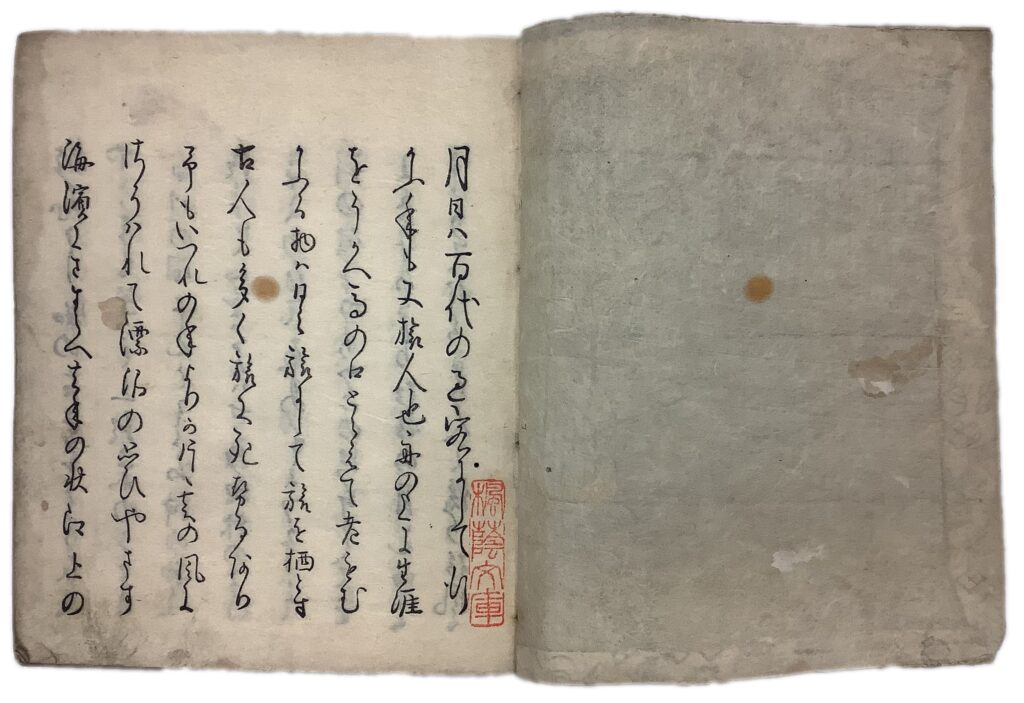 月日ハ百代の過客にして行
かふ年も又旅人也舟の上に生涯
をうかへ馬の口とらえて老をむ
かふる物ハ日々旅にして旅を栖とす
古人も多く旅に死せるあり
予もいつれの年よりか片雲の風に
さそハれて漂泊の思ひやます
海濱にさすらへ去年の秋江上の
楓蔭文庫